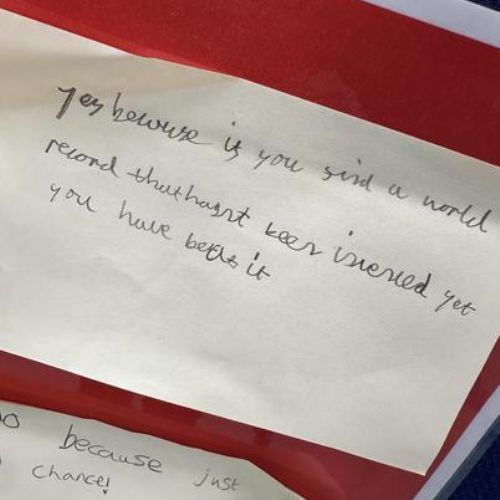 yes because is you sind a world
record that hasnt been invented yet
you have it
o because just
chance!